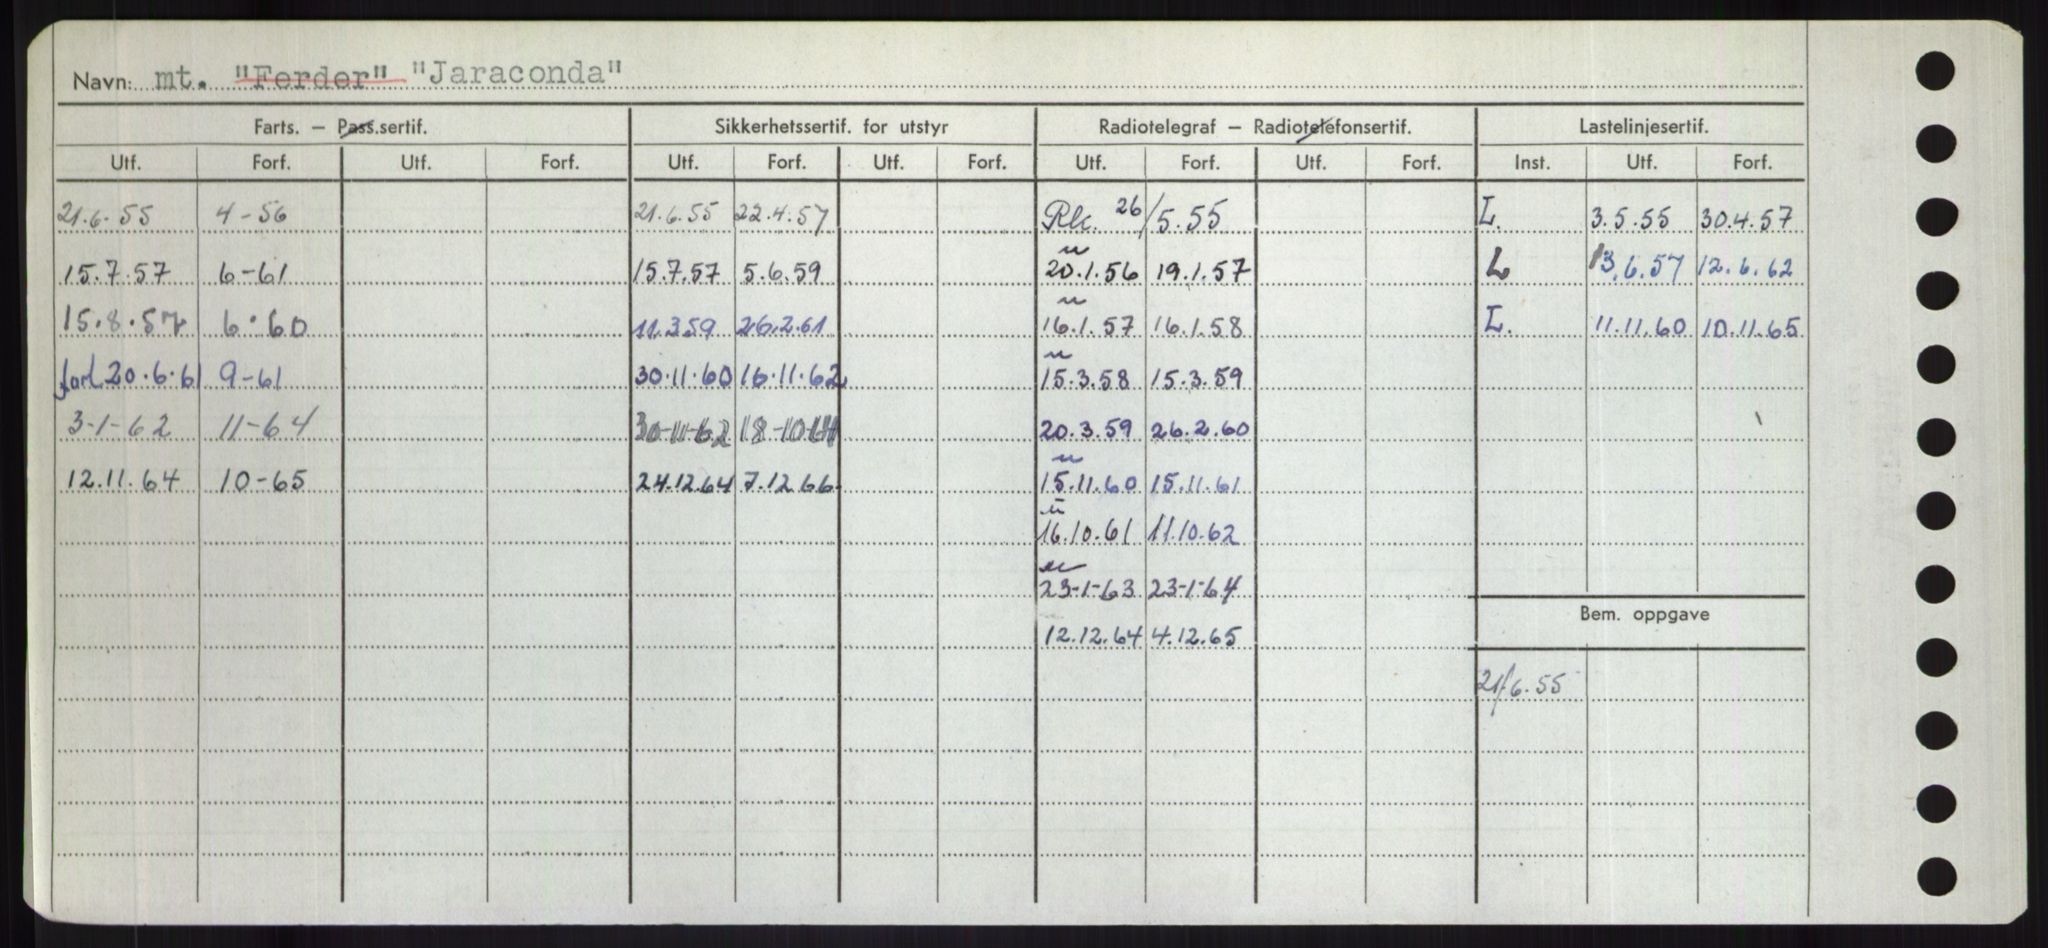 Navn: mt. "Ferder" "Jaraconda"
Farts. – Pass.sertif. Sikkerhetssertif. for utstyr Radiotelegraf – Radiotelefonsertif. Lastelinjesertif.
Utf. Forf. Utf. Forf. Utf. Forf. Utf. Forf. Utf. Forf. Utf. Forf. Inst. Utf. Forf.
21.6.55 4-56 21.6.55 22.4.57 Rk. 26/5.55 L. 3.5.55 30.4.57
15.7.57 6-61 15.7.57 5.6.59 u 20.1.56 19.1.57 L 13.6.57 12.6.62
15.8.57 6.60 11.3.59 26.2.61 u 16.1.57 16.1.58 L. 11.11.60 10.11.65
forl 20.6.61 9-61 30.11.60 16.11.62 u 15.3.58 15.3.59
3-1-62 11-64 30-11-62 18-10-64 20.3.59 26.2.60
12.11.64 10-65 24.12.64 7.12.66 u 15.11.60 15.11.61
u 16.10.61 11.10.62
u 23-1-63 23-1-64
Bem. oppgave
12.12.64 4.12.65
21/6.55